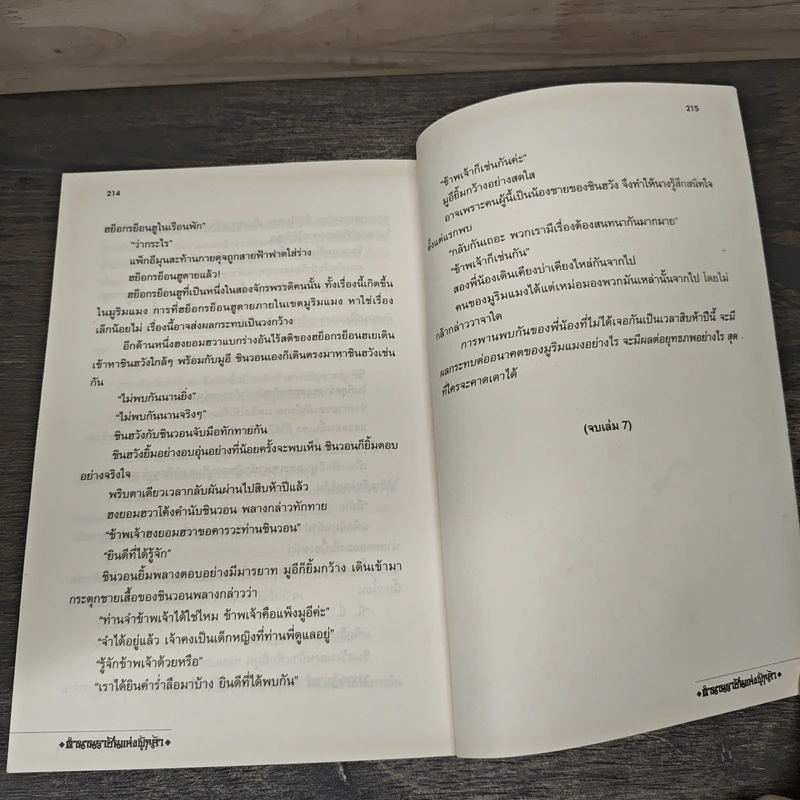 214
ฮย็อกรย็อนฮูในเรือนพัก"
"ว่ากระไร"
แพ็กอีมุนสะท้านกายดุจถูกสายฟ้าฟาดใส่ร่าง
ฮย็อกรย็อนฮูตายแล้ว!
ฮย็อกรย็อนฮูที่เป็นหนึ่งในสองจักรพรรดิคนนั้น ทั้งเรื่องนี้เกิดขึ้น
ในมูริมแมง การที่ฮย็อกรย็อนฮูตายภายในเขตมูริมแมง หาใช่เรื่อง
เล็กน้อยไม่ เรื่องนี้อาจส่งผลกระทบเป็นวงกว้าง
อีกด้านหนึ่งฮงยอมฮวาแบกร่างอันไร้สติของฮย็อกรย็อนฮเยเดิน
เข้าหาชินฮวังใกล้ๆ พร้อมกับมูอี ชินวอนเองก็เดินตรงมาหาชินฮวังเช่น
กัน
"ไม่พบกันนานยิ่ง"
"ไม่พบกันนานจริงๆ"
ชินฮวังกับชินวอนจับมือทักทายกัน
ชินฮวังยิ้มอย่างอบอุ่นอย่างที่น้อยครั้งจะพบเห็น ชินวอนก็ยิ้มตอบ
อย่างจริงใจ
พริบตาเดียวเวลากลับผันผ่านไปสิบห้าปีแล้ว
ฮงยอมฮวาโค้งคำนับชินวอน พลางกล่าวทักทาย
"ข้าพเจ้าฮงยอมฮวาขอคารวะท่านชินวอน"
"ยินดีที่ได้รู้จัก"
ชินวอนยิ้มพลางตอบอย่างมีมารยาท มูอีก็ยิ้มกว้าง เดินเข้ามา
กระตุกชายเสื้อของชินวอนพลางกล่าวว่า
"ท่านจำข้าพเจ้าได้ใช่ไหม ข้าพเจ้าคือแพ็งมูอีค่ะ"
"จำได้อยู่แล้ว เจ้าคงเป็นเด็กหญิงที่ท่านพี่ดูแลอยู่"
"รู้จักข้าพเจ้าด้วยหรือ"
"เราได้ยินคำร่ำลือมาบ้าง ยินดีที่ได้พบกัน"
215
"ข้าพเจ้าก็เช่นกันค่ะ"
มูอียิ้มกว้างอย่างสดใส
อาจเพราะคนผู้นี้เป็นน้องชายของชินฮวัง จึงทำให้นางรู้สึกสนิทใจ
ตั้งแต่แรกพบ
"กลับกันเถอะ พวกเรามีเรื่องต้องสนทนากันมากมาย"
"ข้าพเจ้าก็เช่นกัน"
สองพี่น้องเดินเคียงบ่าเคียงไหล่กันจากไป
คนของมูริมแมงได้แต่เหม่อมองพวกมันเหล่านั้นจากไป โดยไม่
กล้ากล่าววาจาใด
การพานพบกันของพี่น้องที่ไม่ได้เจอกันเป็นเวลาสิบห้าปีนี้ จะมี
ผลกระทบต่ออนาคตของมูริมแมงอย่างไร จะมีผลต่อยุทธภพอย่างไร สุด
ที่ใครจะคาดเดาได้
(จบเล่ม 7)